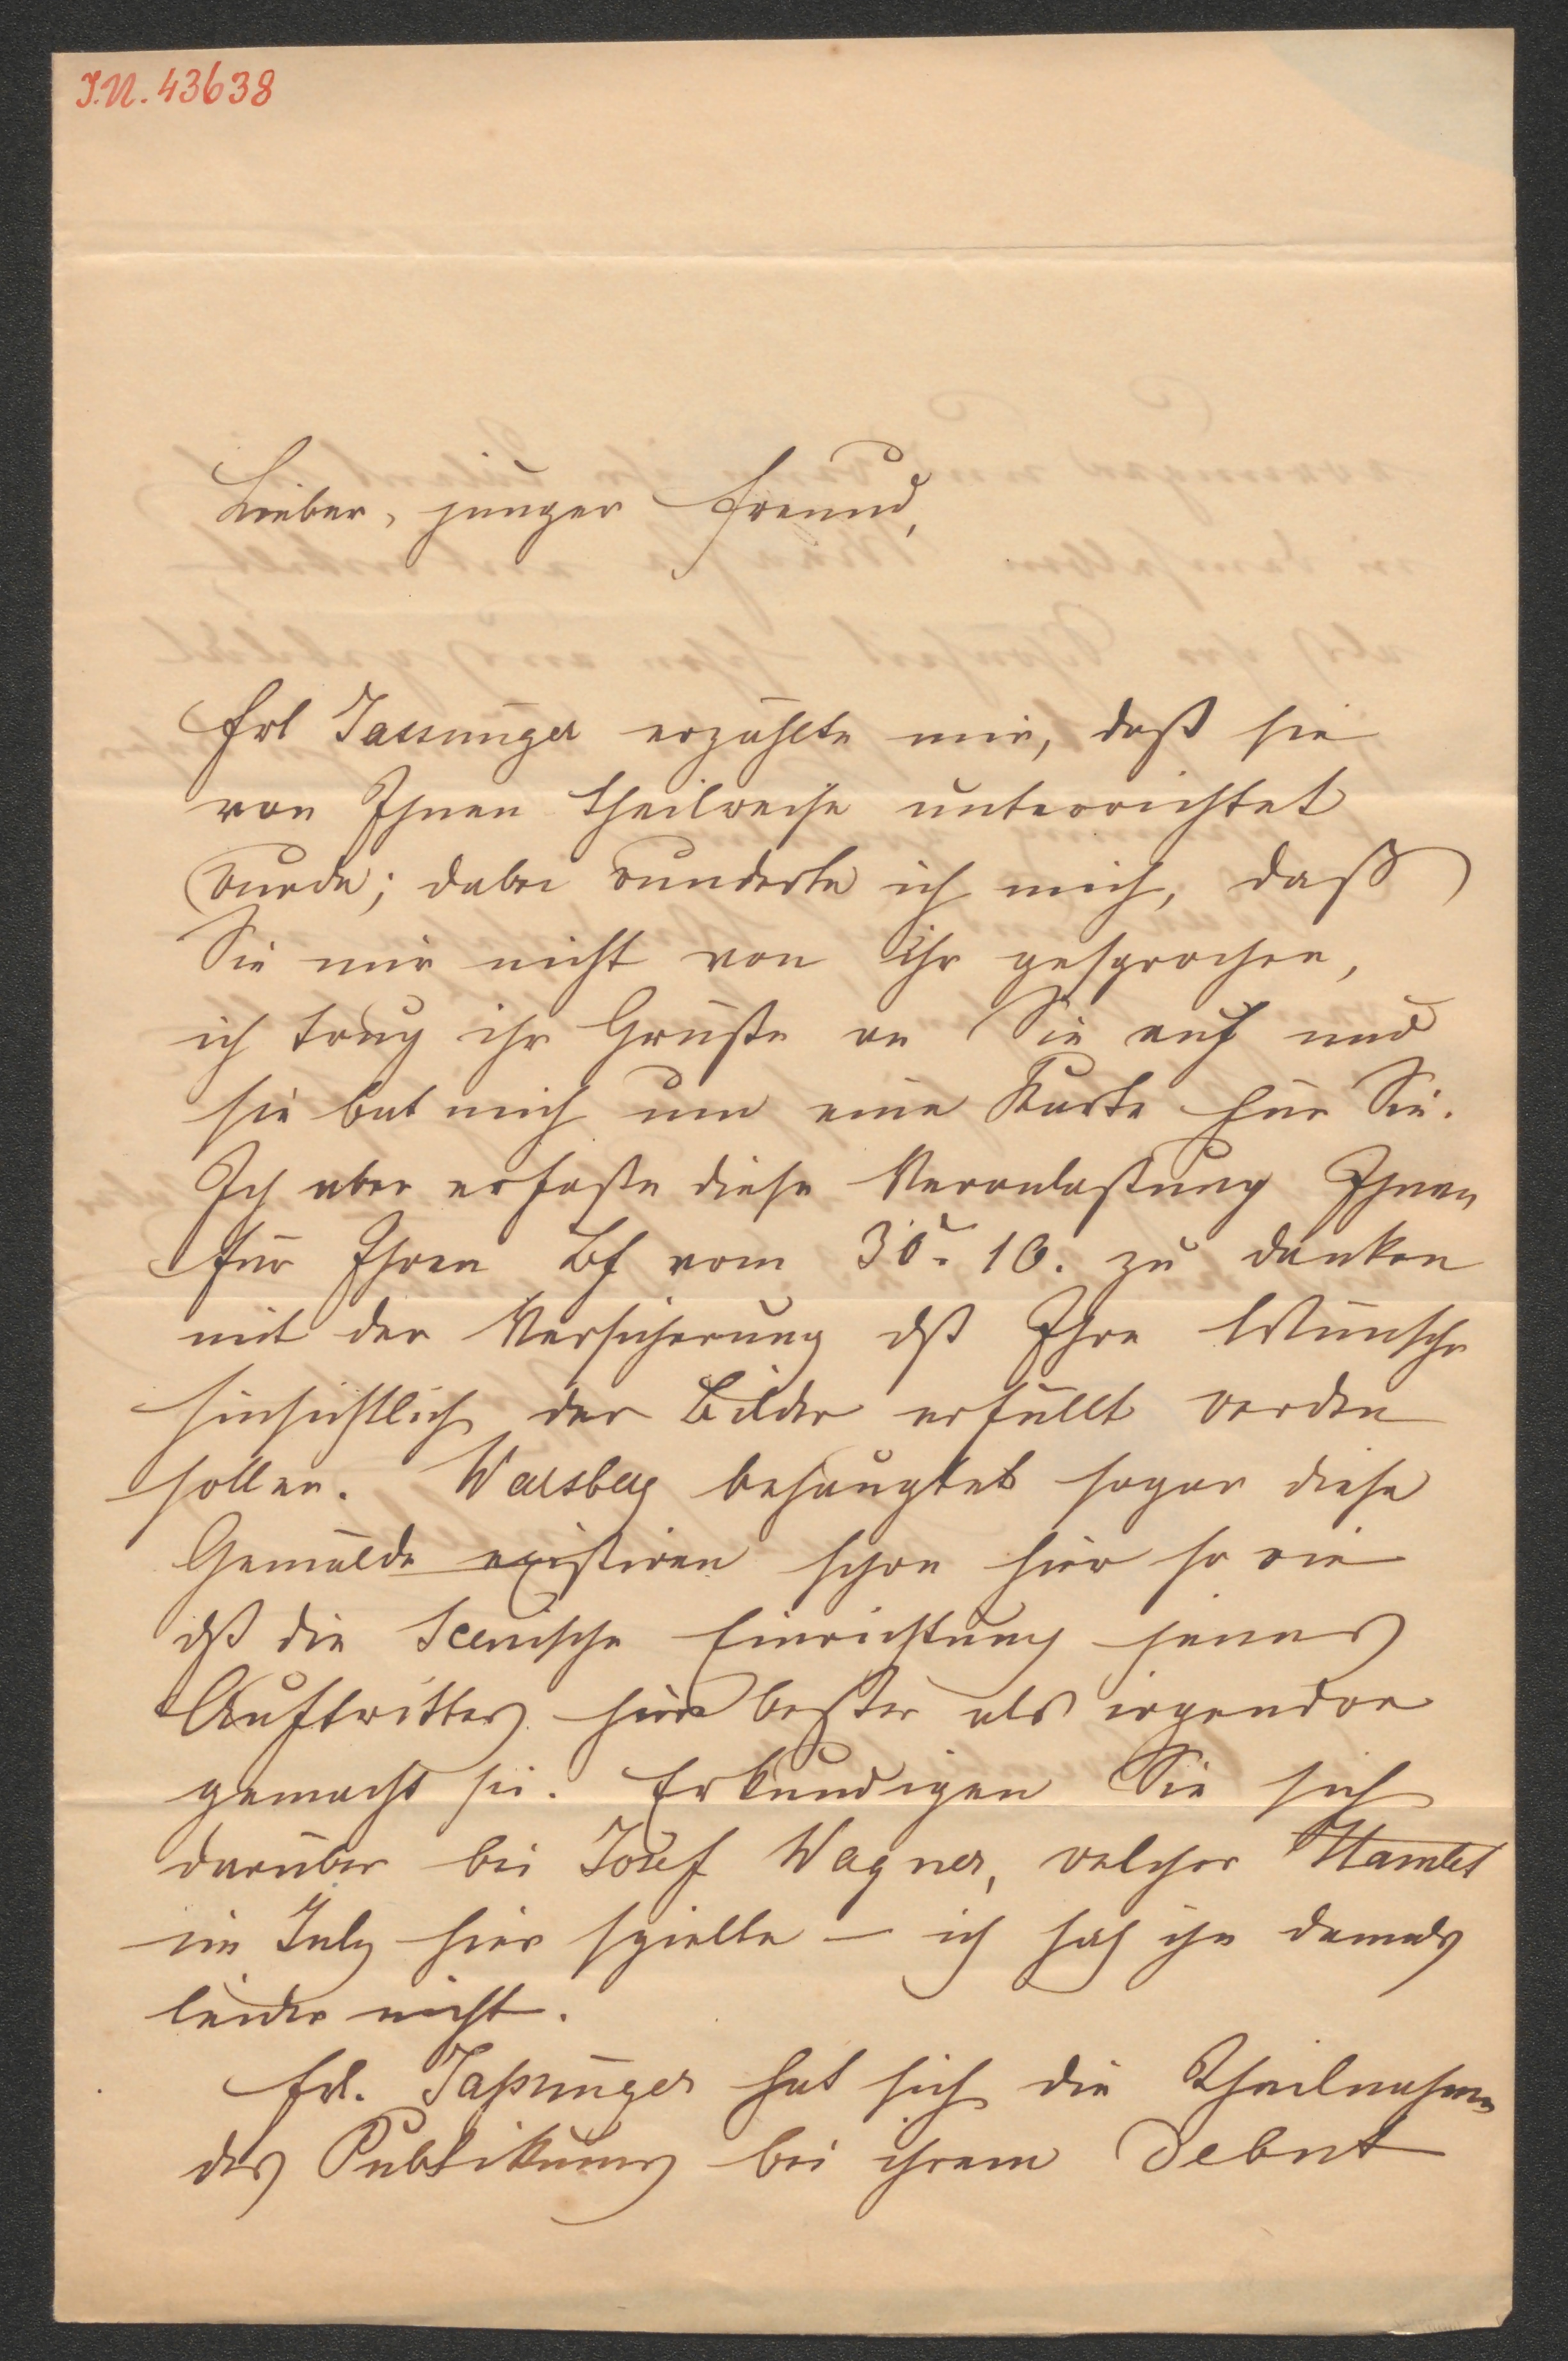 I.N. 43638
Lieber, junger Freund,
Frl Jassünger erzählte mir, daß sie
von Ihnen theilweise unterrichtet
wurde; dabei wunderte ich mich, daß
Sie mir nicht von ihr gesprochen,
ich trug ihr Grüße an Sie auf und
sie bat mich um eine Karte für Sie.
Ich aber erfaßte diese Veranlaßung Ihnen
für Ihren Bf vom 30. 10. zu danken
mit der Versicherung dß Ihre Wünsche
hinsichtlich der Bilder erfüllt werden
sollen. Warsberg behauptet sogar diese
Gemälde existiren schon hier so wie
dß die Scenische Einrichtung jenes
Auftrittes hier beßer als irgendwo
gemacht sei. Erkundigen Sie sich
darüber bei Josef Wagner, welcher Hamlet
im July hier spielte – ich sah ihn damals
leider nicht.
Frl. Jaßünger hat sich die Theilnahme
des Publikums bei ihrem Debut